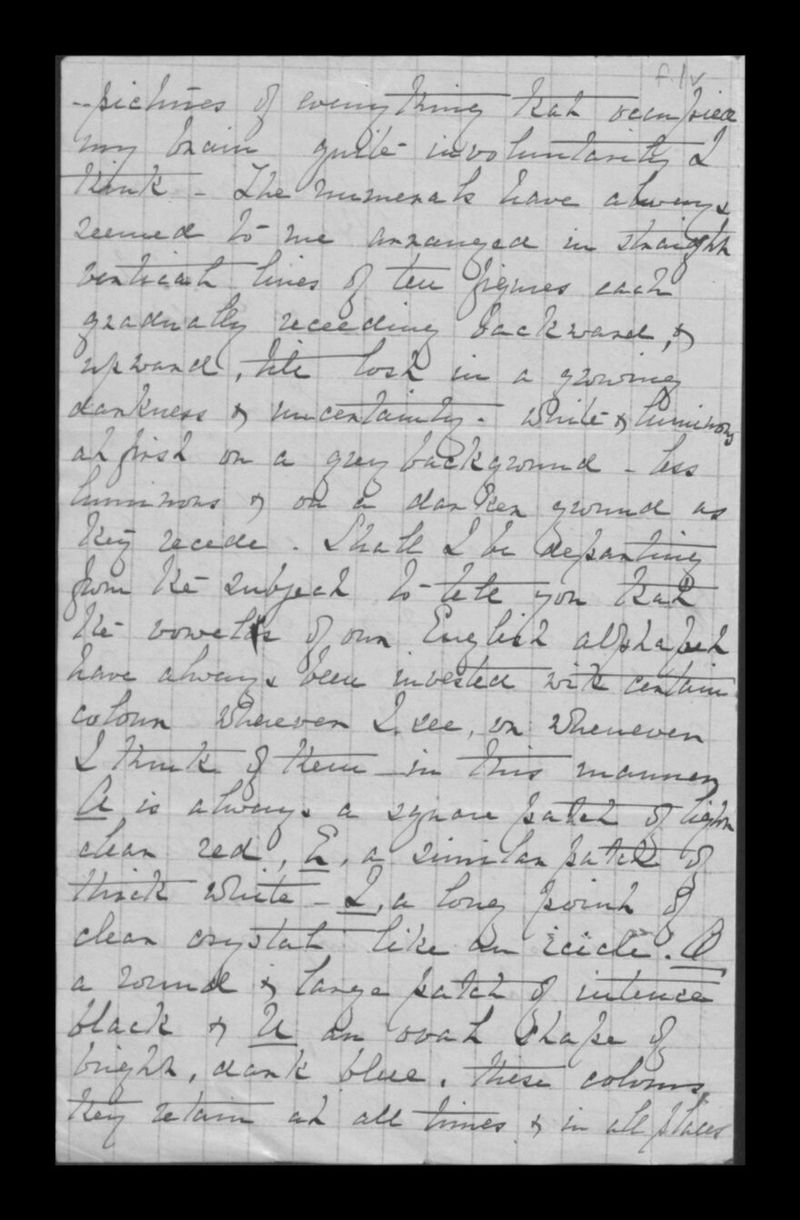 f.1v
-- pictures of everything that occupied
my brain quite involuntarily I
think - The numerals have always
seemed to me arranged in straight
vertical lines of ten figures each
gradually receeding backward, &
upward, till lost in a growing
darkness & uncertainty. White & luminous
at first on a grey background - less
luminous & on a darker ground as
they recede. Shall I be departing
from the subject to tell you that
the vowels of our English alphabet
have always been invested with certain
colour wherever I see, or whenever
I think of them - in this manner,
A is always a square patch of light
clear red, E, a similar patch of
thick white - I, a long point of
clear crystal like an icicle. O
a round & large patch of intence
black & U an oval shape of
bright, dark blue. These colours,
they retain at all times & in all places